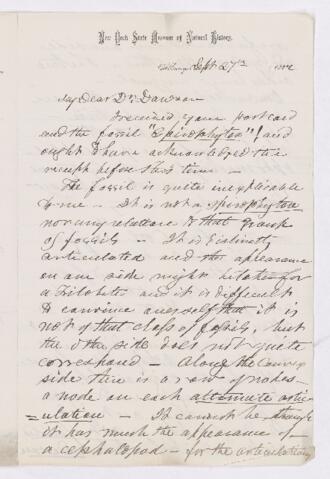 New York State Museum of Natural History.
Albany, Sept 27th 1882
My Dear Dr. Dawson
I received your postcard
and the fossil "Spirophyton"! and
ought to have acknowledged the
receipt before this time —
The fossil is quite inexplicable
to me — It is not a spirophyton
nor any relation to that group
of fossils — It is distinctly
articulated and the appearance
on one side might be taken for
a Trilobite and it is difficult
to convince oneself that it is
not of that class of fossils, but
the other side does not quite
correspond — along the convex
side there is a row of nodes —
a node on each alternate artic-
=ulation — It cannot be though
it has much the appearance of
a cephalopod — for the articulations